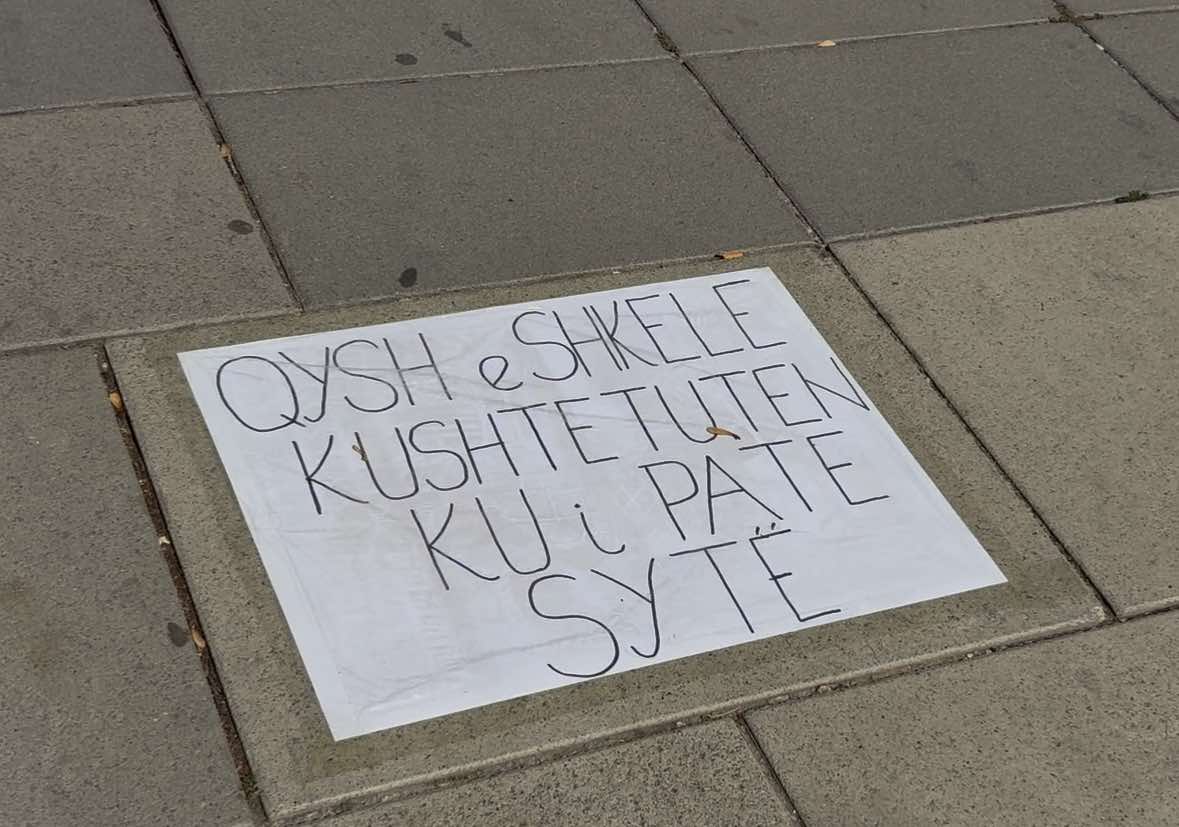 QYSH e SHKELE
KUSHTETUTEN
KU i PATE
SYTË